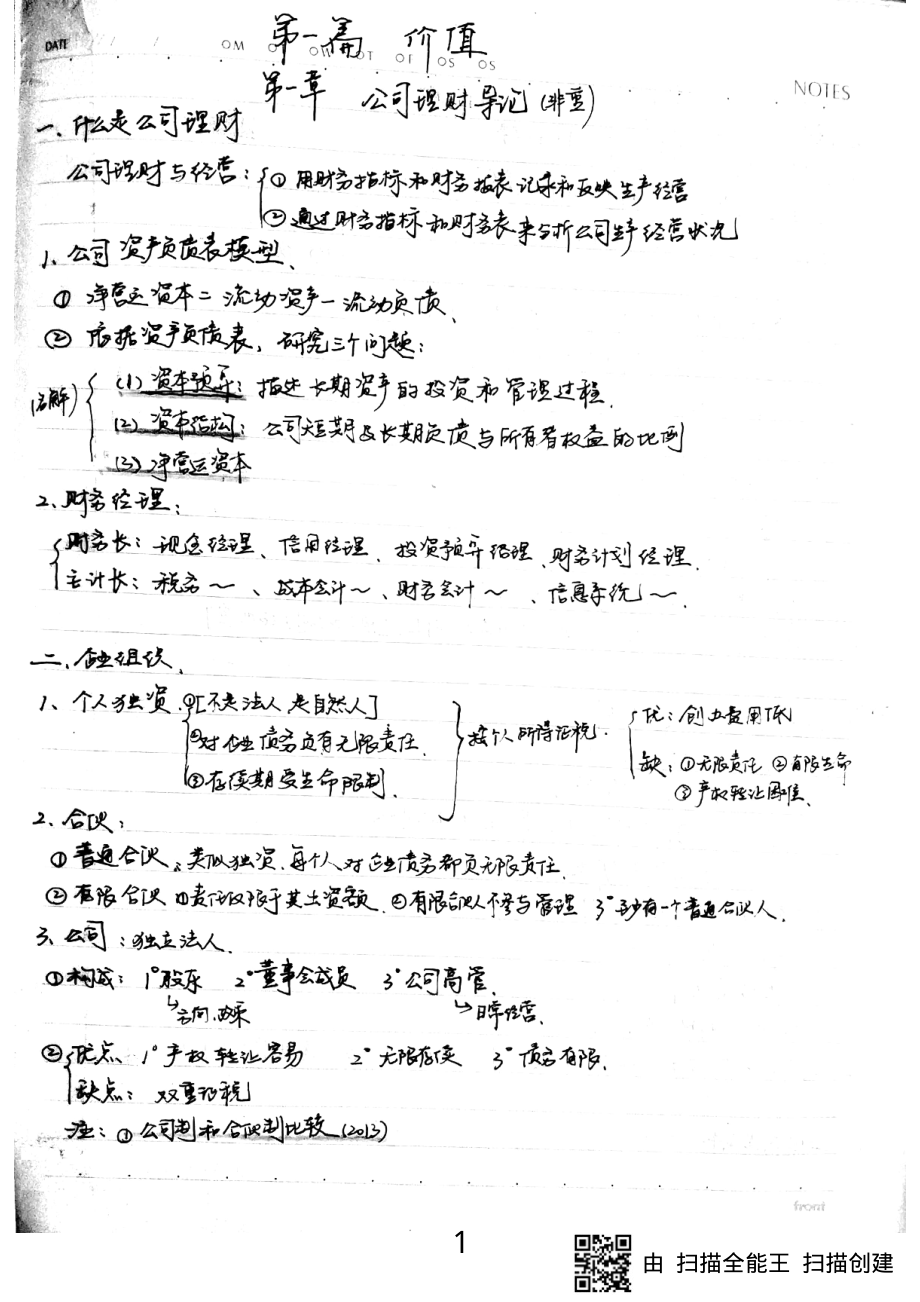 DATE / / OM OT OW OT OF OS OS
第一篇 价值
NOTES
第一章 公司理财导论(非重)
一、什么是公司理财
公司理财与经营：①用财务指标和财务报表记录和反映生产经营
②通过财务指标和财务表来分析公司生产经营状况
1、公司资产负债表模型、
①净营运资本=流动资产-流动负债、
②依据资产负债表，研究三个问题：
(名解) (1)资本预算：描述长期资产的投资和管理过程.
(2)资本结构：公司短期及长期负债与所有者权益的比例
(3)净营运资本
2、财务经理：
财务长：现金经理、信用经理、投资预算经理、财务计划经理.
主计长：税务～、成本会计～、财务会计～、信息系统～.
二、企业组织、
1、个人独资.①[不是法人,是自然人]
②对企业债务负有无限责任.
③存续期受生命限制.
按个人所得征税.
优：创办费用低
缺：①无限责任 ②有限生命
③产权转让困难、
2、合伙：
①普通合伙：类似独资.每个人对企业债务都负无限责任.
②有限合伙 ①责任仅限于其出资额.②有限合伙人不参与管理 3°至少有一个普通合伙人.
3、公司：独立法人.
①构成：1°股东 2°董事会成员 3°公司高管.
↳方向,政策 ↳日常经营、
②优点、1°产权转让容易 2°无限存续 3°债务有限.
缺点：双重征税
注：①公司制和合伙制比较(2013)
front
1
由 扫描全能王 扫描创建